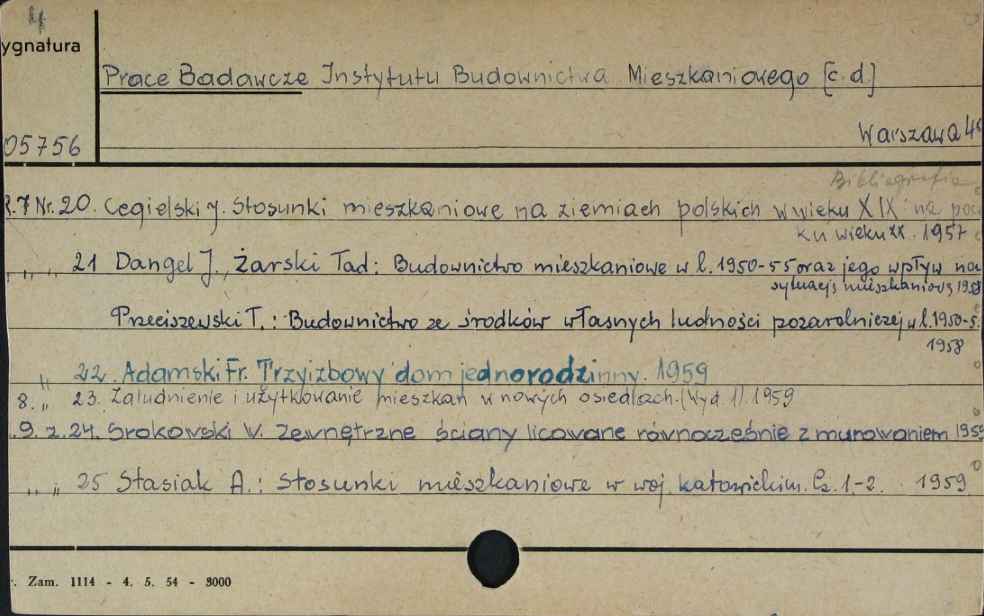 ygnatura
Prace Badawcze Instytutu Budownictwa Mieszkaniowego [c.d.]
05756
Warszawa 4
Bibliografia
R.7 Nr. 20. Cegielski J. Stosunki mieszkaniowe na ziemiach polskich w wieku XIX i na począ
ku wieku XX. 1957
" " " 21 Dangel J., Żarski Tad: Budownictwo mieszkaniowe w l. 1950-55 oraz jego wpływ na
sytuację mieszkaniową 1958
Przeciszewski T.: Budownictwo ze środków własnych ludności pozarolniczej w l. 1950-5
1958
" 22. Adamski Fr. Trzyizbowy dom jednorodzinny. 1959
8. " 23. Zaludnienie i użytkowanie mieszkań w nowych osiedlach. (Wyd. 1). 1959
.9. z. 24. Srokowski W. Zewnętrzne ściany licowane równocześnie z murowaniem 1959
" " 25 Stasiak A.: Stosunki mieszkaniowe w woj. katowickim. Cz. 1-2. 1959
. Zam. 1114 - 4. 5. 54 - 8000